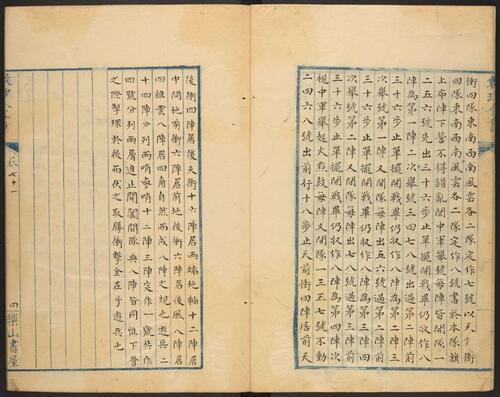 衝四隊東南西南風雲各二隊定作七號以天衝
四隊東南西南風雲各二隊定作八號書於本隊旗
上布陣下營不得錯亂聞中軍舉號每陣皆開隊一
二五六號先出三十六步止單擺開戰畢仍收作八
陣為第一陣二次舉號三四七八號出過第二陣前
三十六步止單擺開戰畢仍收作八陣為第二陣三
次舉號第一陣又開隊每陣出五六號過第二陣前
三十六步止單擺開戰畢仍收作八陣為第三陣四
次舉號第二陣又開隊每陣出七八號過第三陣前
三十六步止單擺開戰畢仍收作八陣為第四陣次
視中軍舉起火點鼓每陣又開隊一三五七號不動
二四六八號出前行十八步止天前衝四陣居前天
後衝四陣居後天衝十六陣居兩端地軸十二陣居
中間地前衝六陣居前地後衝六陣居後風八陣居
四維雲八陣居四角自然而成八陣之規也遊兵二
十四陣分列兩哨每哨十二陣三陣定作一號共作
四號分列兩層進止開闔開隊與八陣皆同惟下營
之際擊環於後而伏之取勝衝擊全在乎遊兵也
卷七十一
四樂山書屋